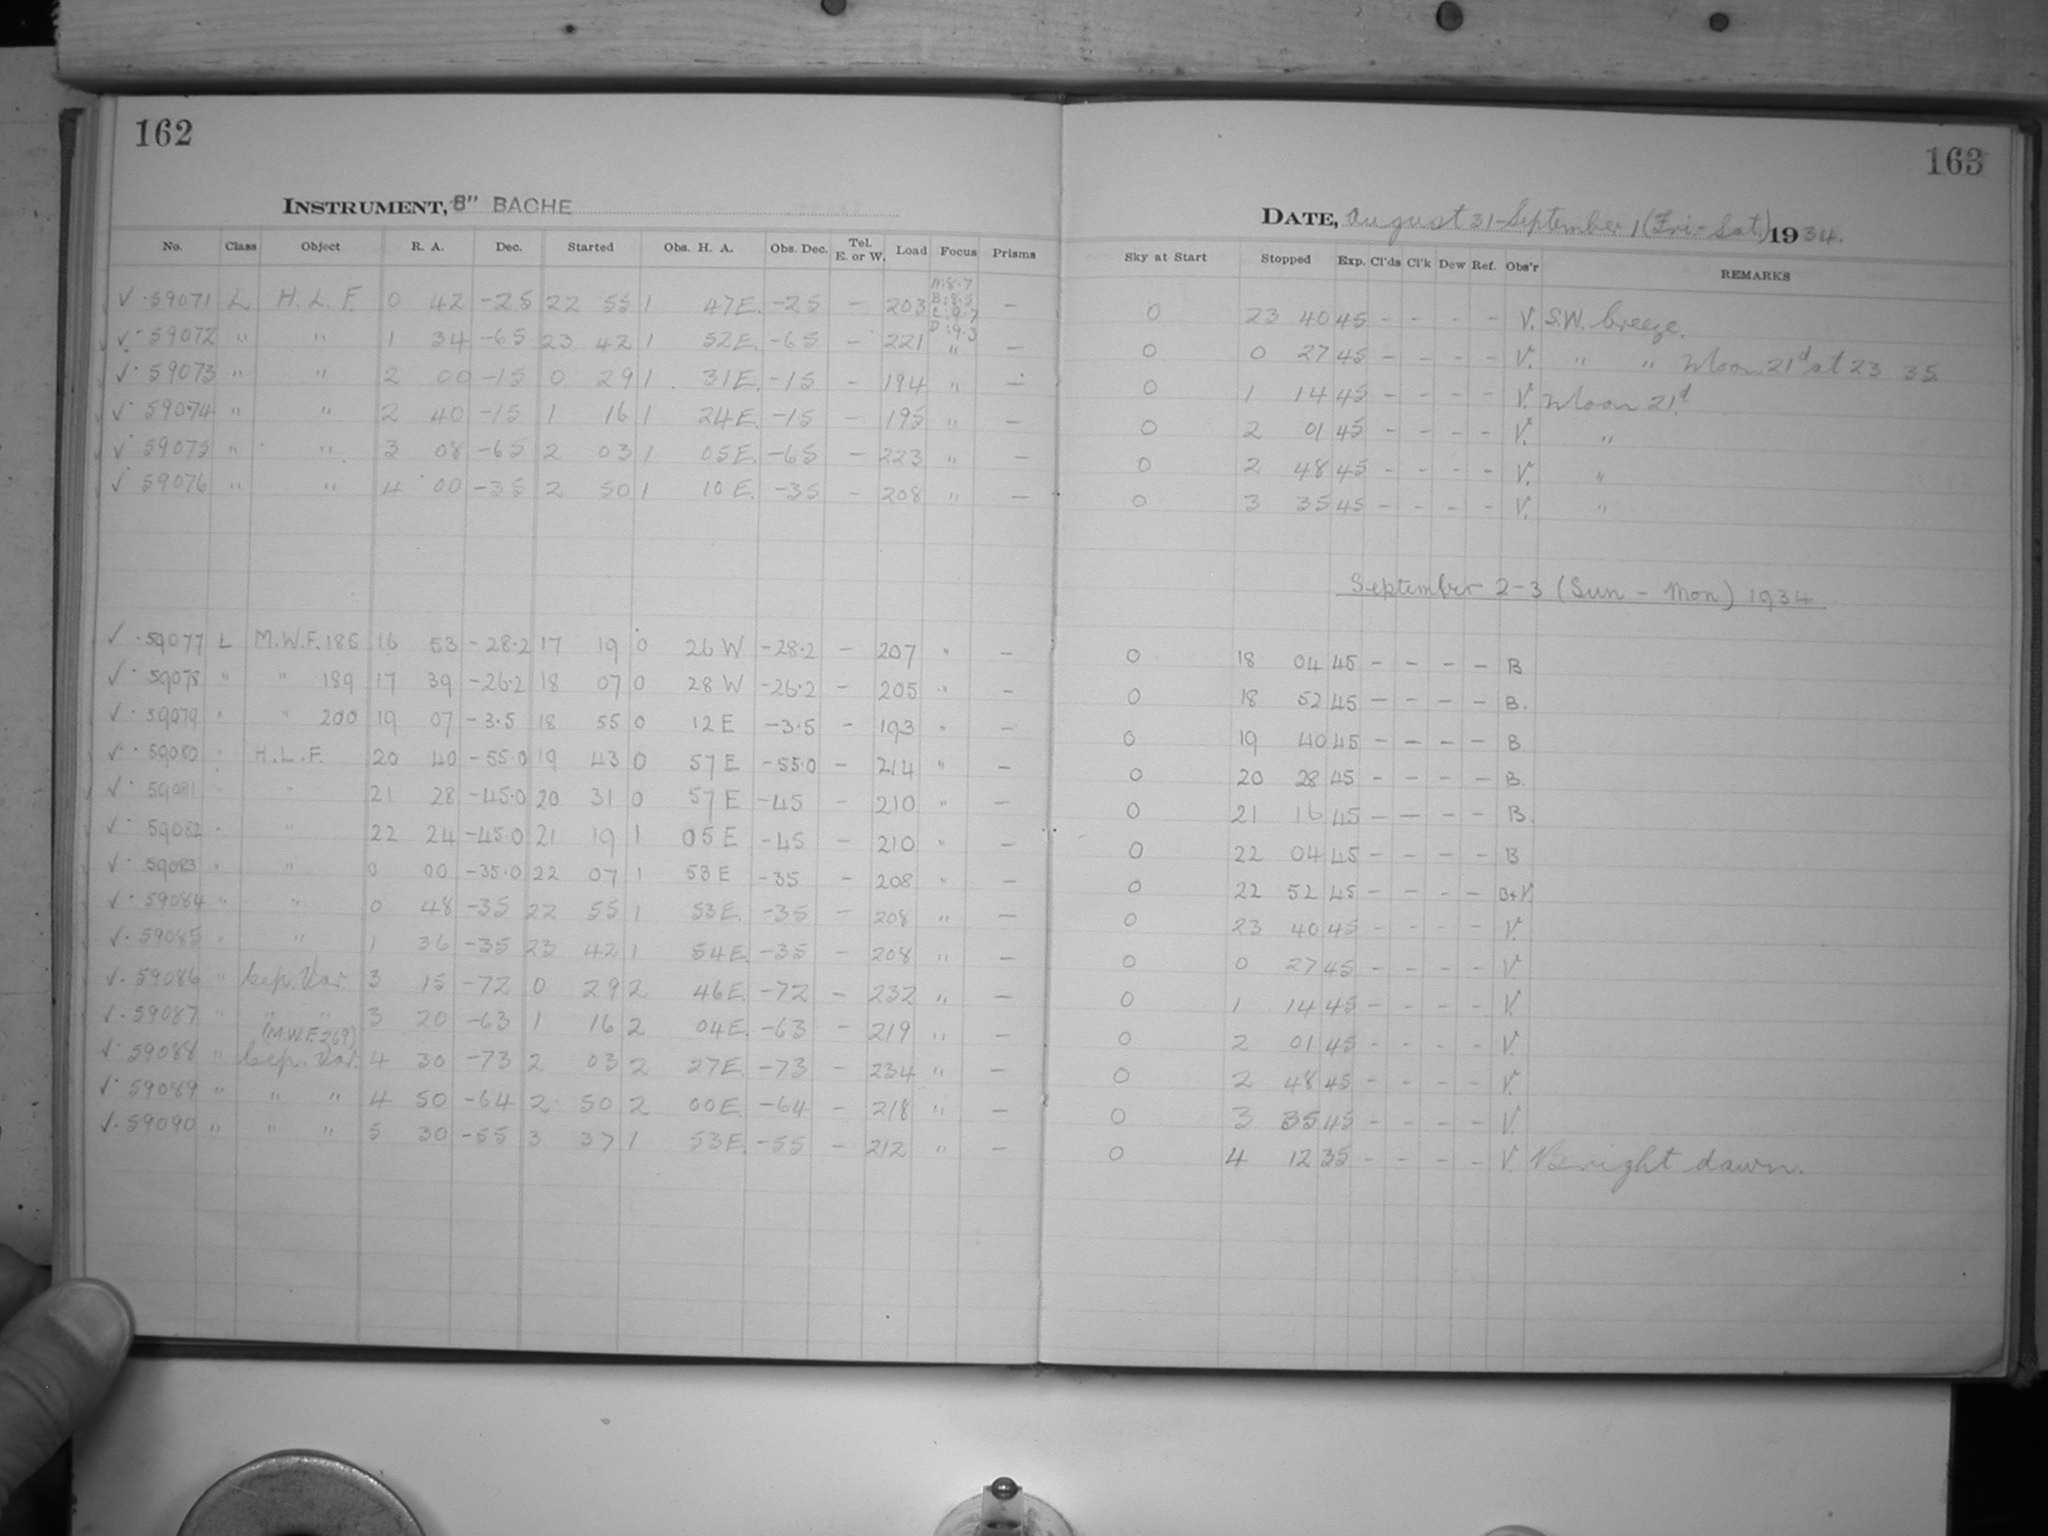 162
163
INSTRUMENT, 8" BACHE
DATE, August 31-September 1 (Fri.-Sat.) 1934.
No. Class Object R. A. Dec. Started Obs. H. A. Obs. Dec. Tel. E. or W. Load Focus Prisms Sky at Start Stopped Exp. Cl'ds Cl'k Dew Ref. Obs'r REMARKS
A:8.7
B:8.5
C:9.7
D:9.3
√ 59071 L H.L.F. 0 42 -25 22 55 1 47E. -25 - 203 - 0 23 40 45 - - - - V. S.W. breeze.
√ 59072 " " 1 34 -65 23 42 1 52E. -65 - 221 " - 0 0 27 45 - - - - V. " " Moon 21d at 23 35.
√ 59073 " " 2 00 -15 0 29 1 31E. -15 - 194 " - 0 1 14 45 - - - - V. Moon 21d.
√ 59074 " " 2 40 -15 1 16 1 24E. -15 - 195 " - 0 2 01 45 - - - - V. "
√ 59075 " " 3 08 -65 2 03 1 05E. -65 - 223 " - 0 2 48 45 - - - - V. "
√ 59076 " " 4 00 -35 2 50 1 10E. -35 - 208 " - 0 3 35 45 - - - - V. "
September 2-3 (Sun - Mon) 1934
√ 59077 L M.W.F. 185 16 53 -28.2 17 19 0 26 W -28.2 - 207 " - 0 18 04 45 - - - - B
√ 59078 " " 189 17 39 -26.2 18 07 0 28 W -26.2 - 205 " - 0 18 52 45 - - - - B.
√ 59079 " " 200 19 07 -3.5 18 55 0 12 E -3.5 - 193 " - 0 19 40 45 - - - - B
√ 59080 " H.L.F. 20 40 -55.0 19 43 0 57 E -55.0 - 214 " - 0 20 28 45 - - - - B.
√ 59081 " " 21 28 -45.0 20 31 0 57 E -45 - 210 " - 0 21 16 45 - - - - B.
√ 59082 " " 22 24 -45.0 21 19 1 05 E -45 - 210 " - 0 22 04 45 - - - - B
√ 59083 " " 0 00 -35.0 22 07 1 53 E -35 - 208 " - 0 22 52 45 - - - - B+V.
√ 59084 " " 0 48 -35 22 55 1 53E. -35 - 208 " - 0 23 40 45 - - - - V.
√ 59085 " " 1 36 -35 23 42 1 54E. -35 - 208 " - 0 0 27 45 - - - - V.
√ 59086 " Cep. Var. 3 15 -72 0 29 2 46E. -72 - 232 " - 0 1 14 45 - - - - V.
√ 59087 " " " 3 20 -63 1 16 2 04E. -63 - 219 " - 0 2 01 45 - - - - V.
(M.W.F. 269)
√ 59088 " Cep. Var. 4 30 -73 2 03 2 27E. -73 - 234 " - 0 2 48 45 - - - - V.
√ 59089 " " " 4 50 -64 2 50 2 00E. -64 - 218 " - 0 3 35 45 - - - - V.
√ 59090 " " " 5 30 -55 3 37 1 53E. -55 - 212 " - 0 4 12 35 - - - - V. Bright dawn.